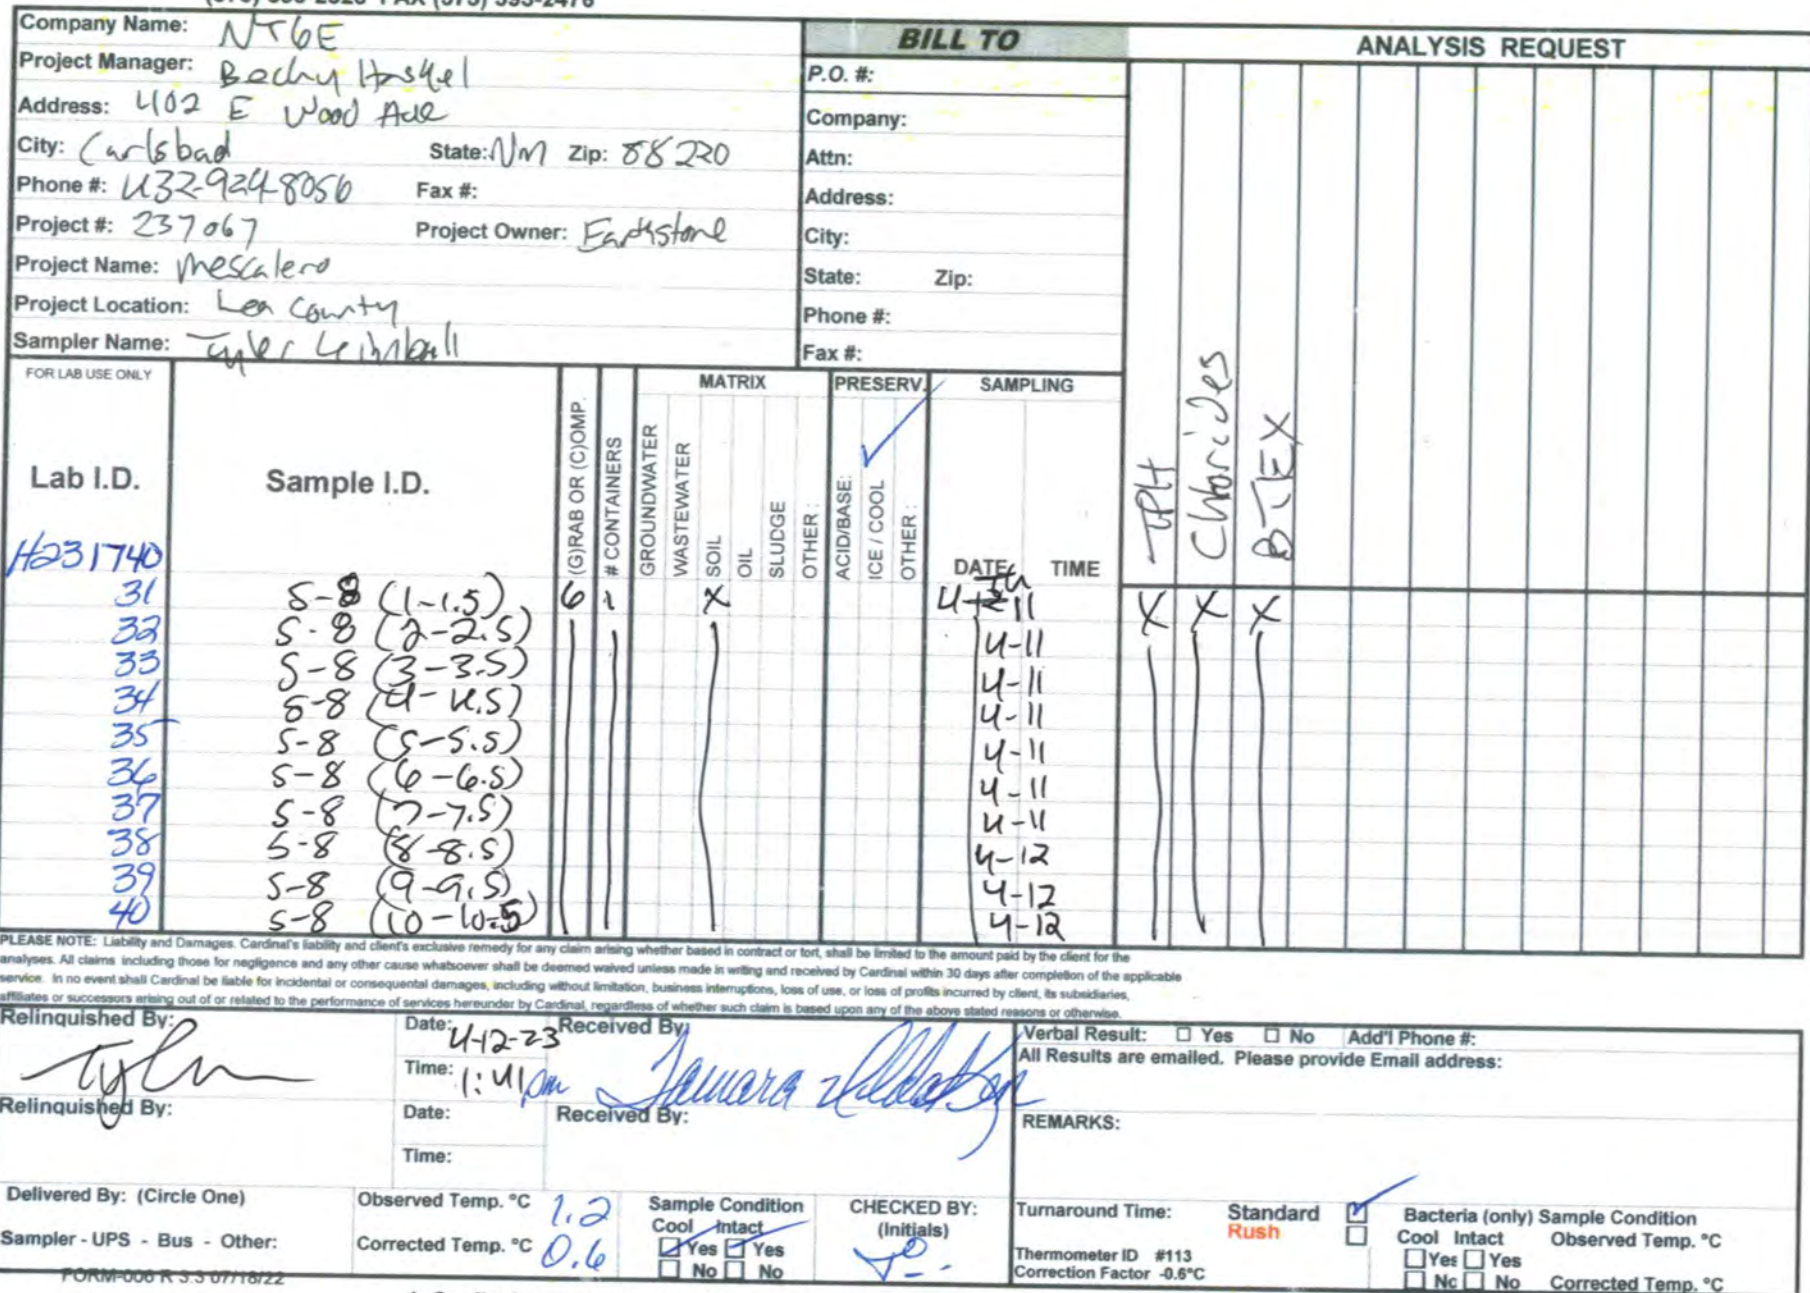 Company Name: NTGE
Project Manager: Becky Haskel
Address: 402 E Wood Ave
City: Carlsbad State: NM Zip: 88220
Phone #: 432-924-8056 Fax #:
Project #: 237067 Project Owner: Earthstone
Project Name: Mescalero
Project Location: Lea County
Sampler Name: Tyler Kimball
BILL TO
P.O. #:
Company:
Attn:
Address:
City:
State: Zip:
Phone #:
Fax #:
ANALYSIS REQUEST
TPH
Chlorides
BTEX
FOR LAB USE ONLY
Lab I.D.
Sample I.D.
(G)RAB OR (C)OMP.
# CONTAINERS
MATRIX
GROUNDWATER
WASTEWATER
SOIL
OIL
SLUDGE
OTHER :
PRESERV.
ACID/BASE:
ICE / COOL
OTHER :
SAMPLING
DATE TIME
H231740
31 S-8 (1-1.5) G 1 X 4-11 X X X
32 S-8 (2-2.5) 4-11
33 S-8 (3-3.5) 4-11
34 S-8 (4-4.5) 4-11
35 S-8 (5-5.5) 4-11
36 S-8 (6-6.5) 4-11
37 S-8 (7-7.5) 4-11
38 S-8 (8-8.5) 4-12
39 S-8 (9-9.5) 4-12
40 S-8 (10-10.5) 4-12
PLEASE NOTE: Liability and Damages. Cardinal's liability and client's exclusive remedy for any claim arising whether based in contract or tort, shall be limited to the amount paid by the client for the
analyses. All claims including those for negligence and any other cause whatsoever shall be deemed waived unless made in writing and received by Cardinal within 30 days after completion of the applicable
service. In no event shall Cardinal be liable for incidental or consequental damages, including without limitation, business interruptions, loss of use, or loss of profits incurred by client, its subsidiaries,
affiliates or successors arising out of or related to the performance of services hereunder by Cardinal, regardless of whether such claim is based upon any of the above stated reasons or otherwise.
Relinquished By: Date: 4-12-23 Received By:
Tyler Time: 1:41pm Tamara
Relinquished By: Date: Received By:
Time:
Verbal Result: Yes No Add'l Phone #:
All Results are emailed. Please provide Email address:
REMARKS:
Delivered By: (Circle One)
Sampler - UPS - Bus - Other:
Observed Temp. °C 1.2
Corrected Temp. °C 0.6
Sample Condition
Cool Intact
Yes Yes
No No
CHECKED BY:
(Initials)
Turnaround Time: Standard
Rush
Thermometer ID #113
Correction Factor -0.6°C
Bacteria (only) Sample Condition
Cool Intact Observed Temp. °C
Yes Yes
No No Corrected Temp. °C
FORM-006 R 3.3 07/18/22